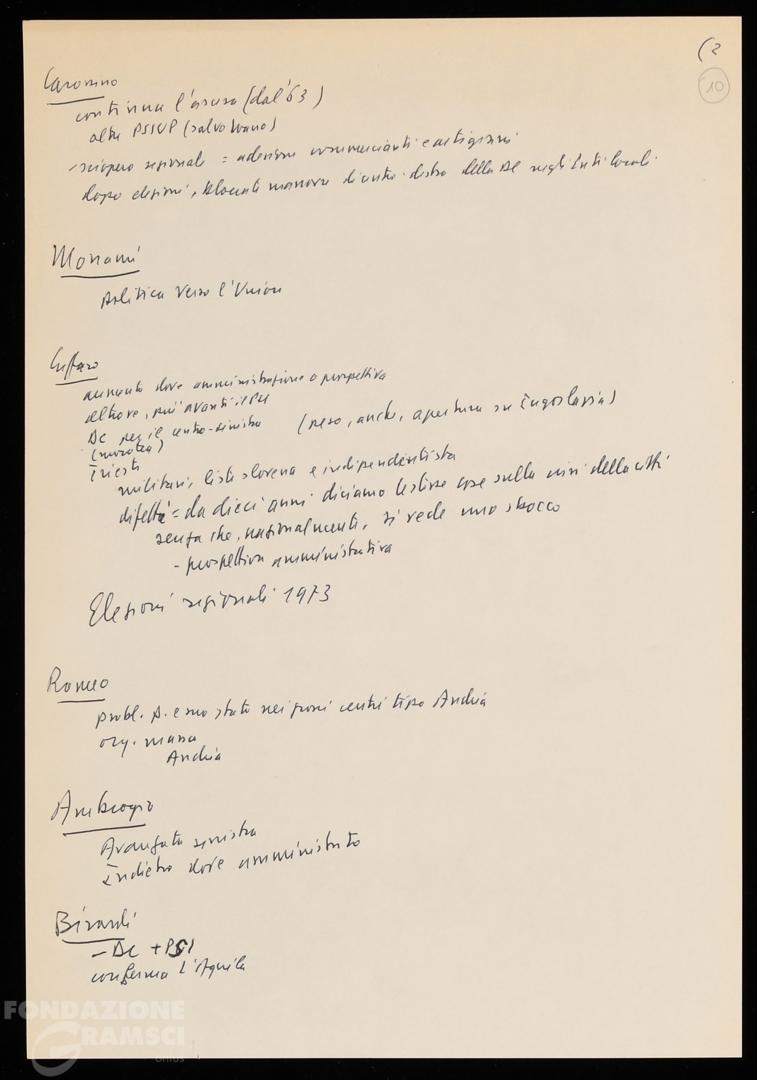 (2
10
continua l'ascesa (dal '63)
altre PSIUP (salvo
- sciopero regionale = adesione commercianti e artigiani
dopo elezioni, bloccate manovre di centro-destra della DC negli Enti locali.
Monami
politica verso l'Unione
Cuffaro
aumento dove amministrazione o prospettiva
altrove, più avanti il PCI
DC per il centro-sinistra
(pero, anche, apertura su Iugoslavia)
Trieste
militari, lista slovena e indipendentista
difetti = da dieci anni diciamo le stesse cose sulla crisi della città
senza che, nazionalmente, si vede uno sbocco
- prospettiva amministrativa
Elezioni regionali 1973
Romeo
probl. è stato nei grossi centri tipo Andria
org. massa
Andria
Ambrogio
Avanzata sinistra
Indietro dove amministrato
Birardi
- DC + PSI
conferma l'Aquila
FONDAZIONE
GRAMSCI
onlus